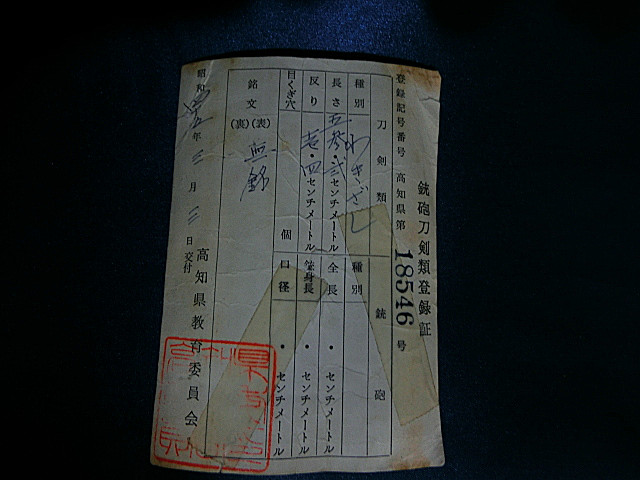 銃砲刀剣類登録証
登録記号番号 高知県第 18546 号
刀剣類
種別 わきざし
長さ 五参・弐センチメートル
反り 壱・四センチメートル
目くぎ穴 個
銘文 (表) 無銘
(裏)
銃砲
種別
全長 ・ センチメートル
銃身長 ・ センチメートル
口径 ・ センチメートル
昭和 年 三 月 三 日交付
高知県教育委員会